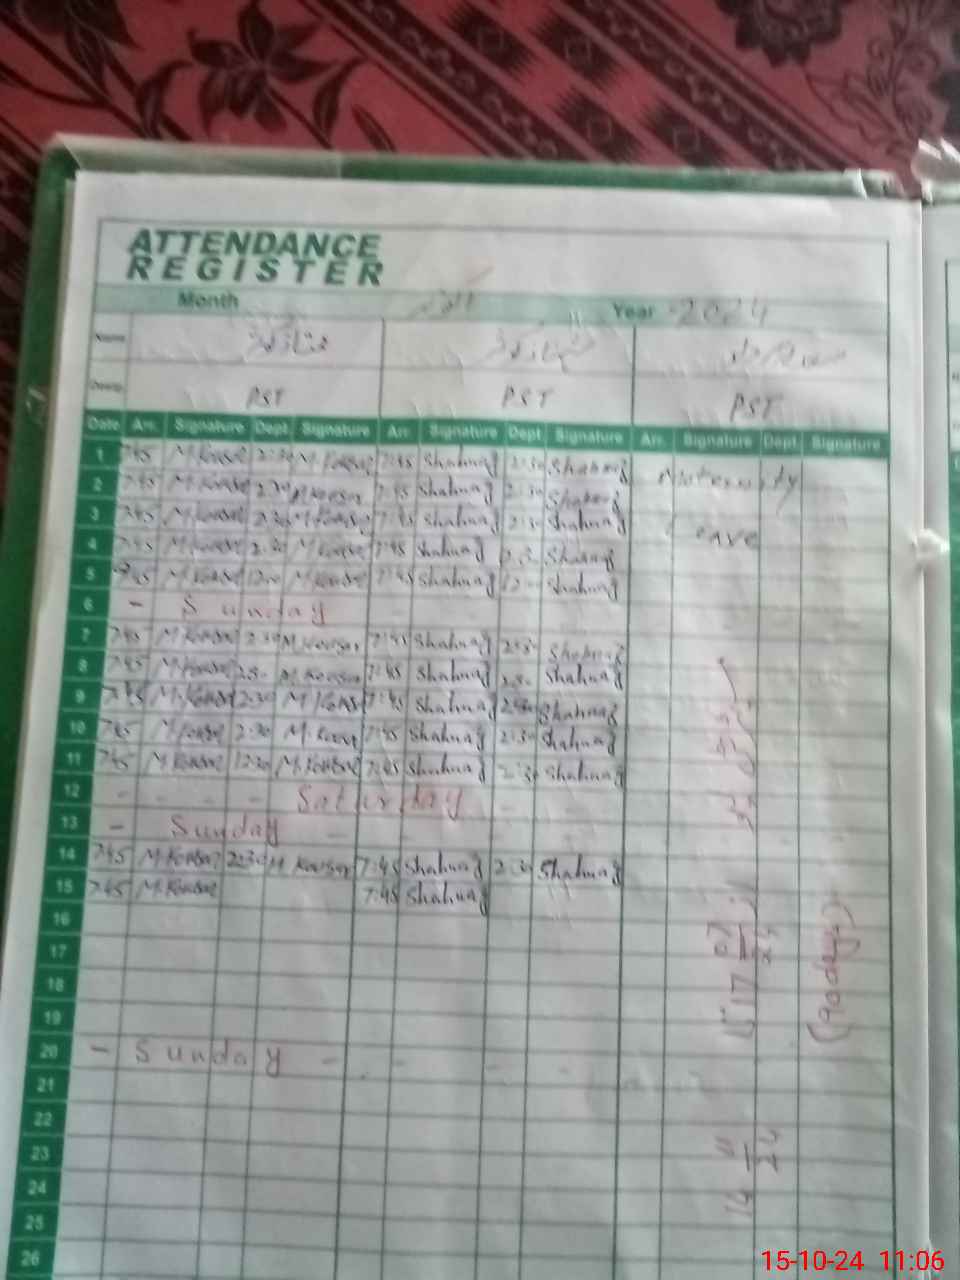 ATTENDANCE
REGISTER
Month Year 2024
Name
Desig: PST PST PST
Date Arr. Signature Dept. Signature Arr. Signature Dept. Signature Arr. Signature Dept. Signature
1 7:45 M.Kousar 2:30 M.Kousar 7:45 Shahnaz 2:30 Shahnaz Maternity
2 7:45 M.Kousar 2:30 M.Kousar 7:45 Shahnaz 2:30 Shahnaz
3 7:45 M.Kousar 2:30 M.Kousar 7:45 Shahnaz 2:30 Shahnaz leave
4 7:45 M.Kousar 2:30 M.Kousar 7:45 Shahnaz 2:30 Shahnaz
5 7:45 M.Kousar M.Kousar 7:45 Shahnaz Shahnaz
6 - Sunday
7 7:45 M.Kousar 2:30 M.Kousar 7:45 Shahnaz 2:30 Shahnaz
8 7:45 M.Kousar 2:30 M.Kousar 7:45 Shahnaz 2:30 Shahnaz
9 7:45 M.Kousar 2:30 M.Kousar 7:45 Shahnaz 2:30 Shahnaz
10 7:45 M.Kousar 2:30 M.Kousar 7:45 Shahnaz 2:30 Shahnaz
11 7:45 M.Kousar 12:30 M.Kousar 7:45 Shahnaz Shahnaz
12 - - - - Saturday -
13 - Sunday - - - -
14 7:45 M.Kousar 2:30 M.Kousar 7:45 Shahnaz 2:30 Shahnaz
15 7:45 M.Kousar 7:45 Shahnaz
16
17
18
19
20 - Sunday - - - -
21
22
23
24
25
26
17 07 24
14 11 24
(90 days)
15-10-24 11:06